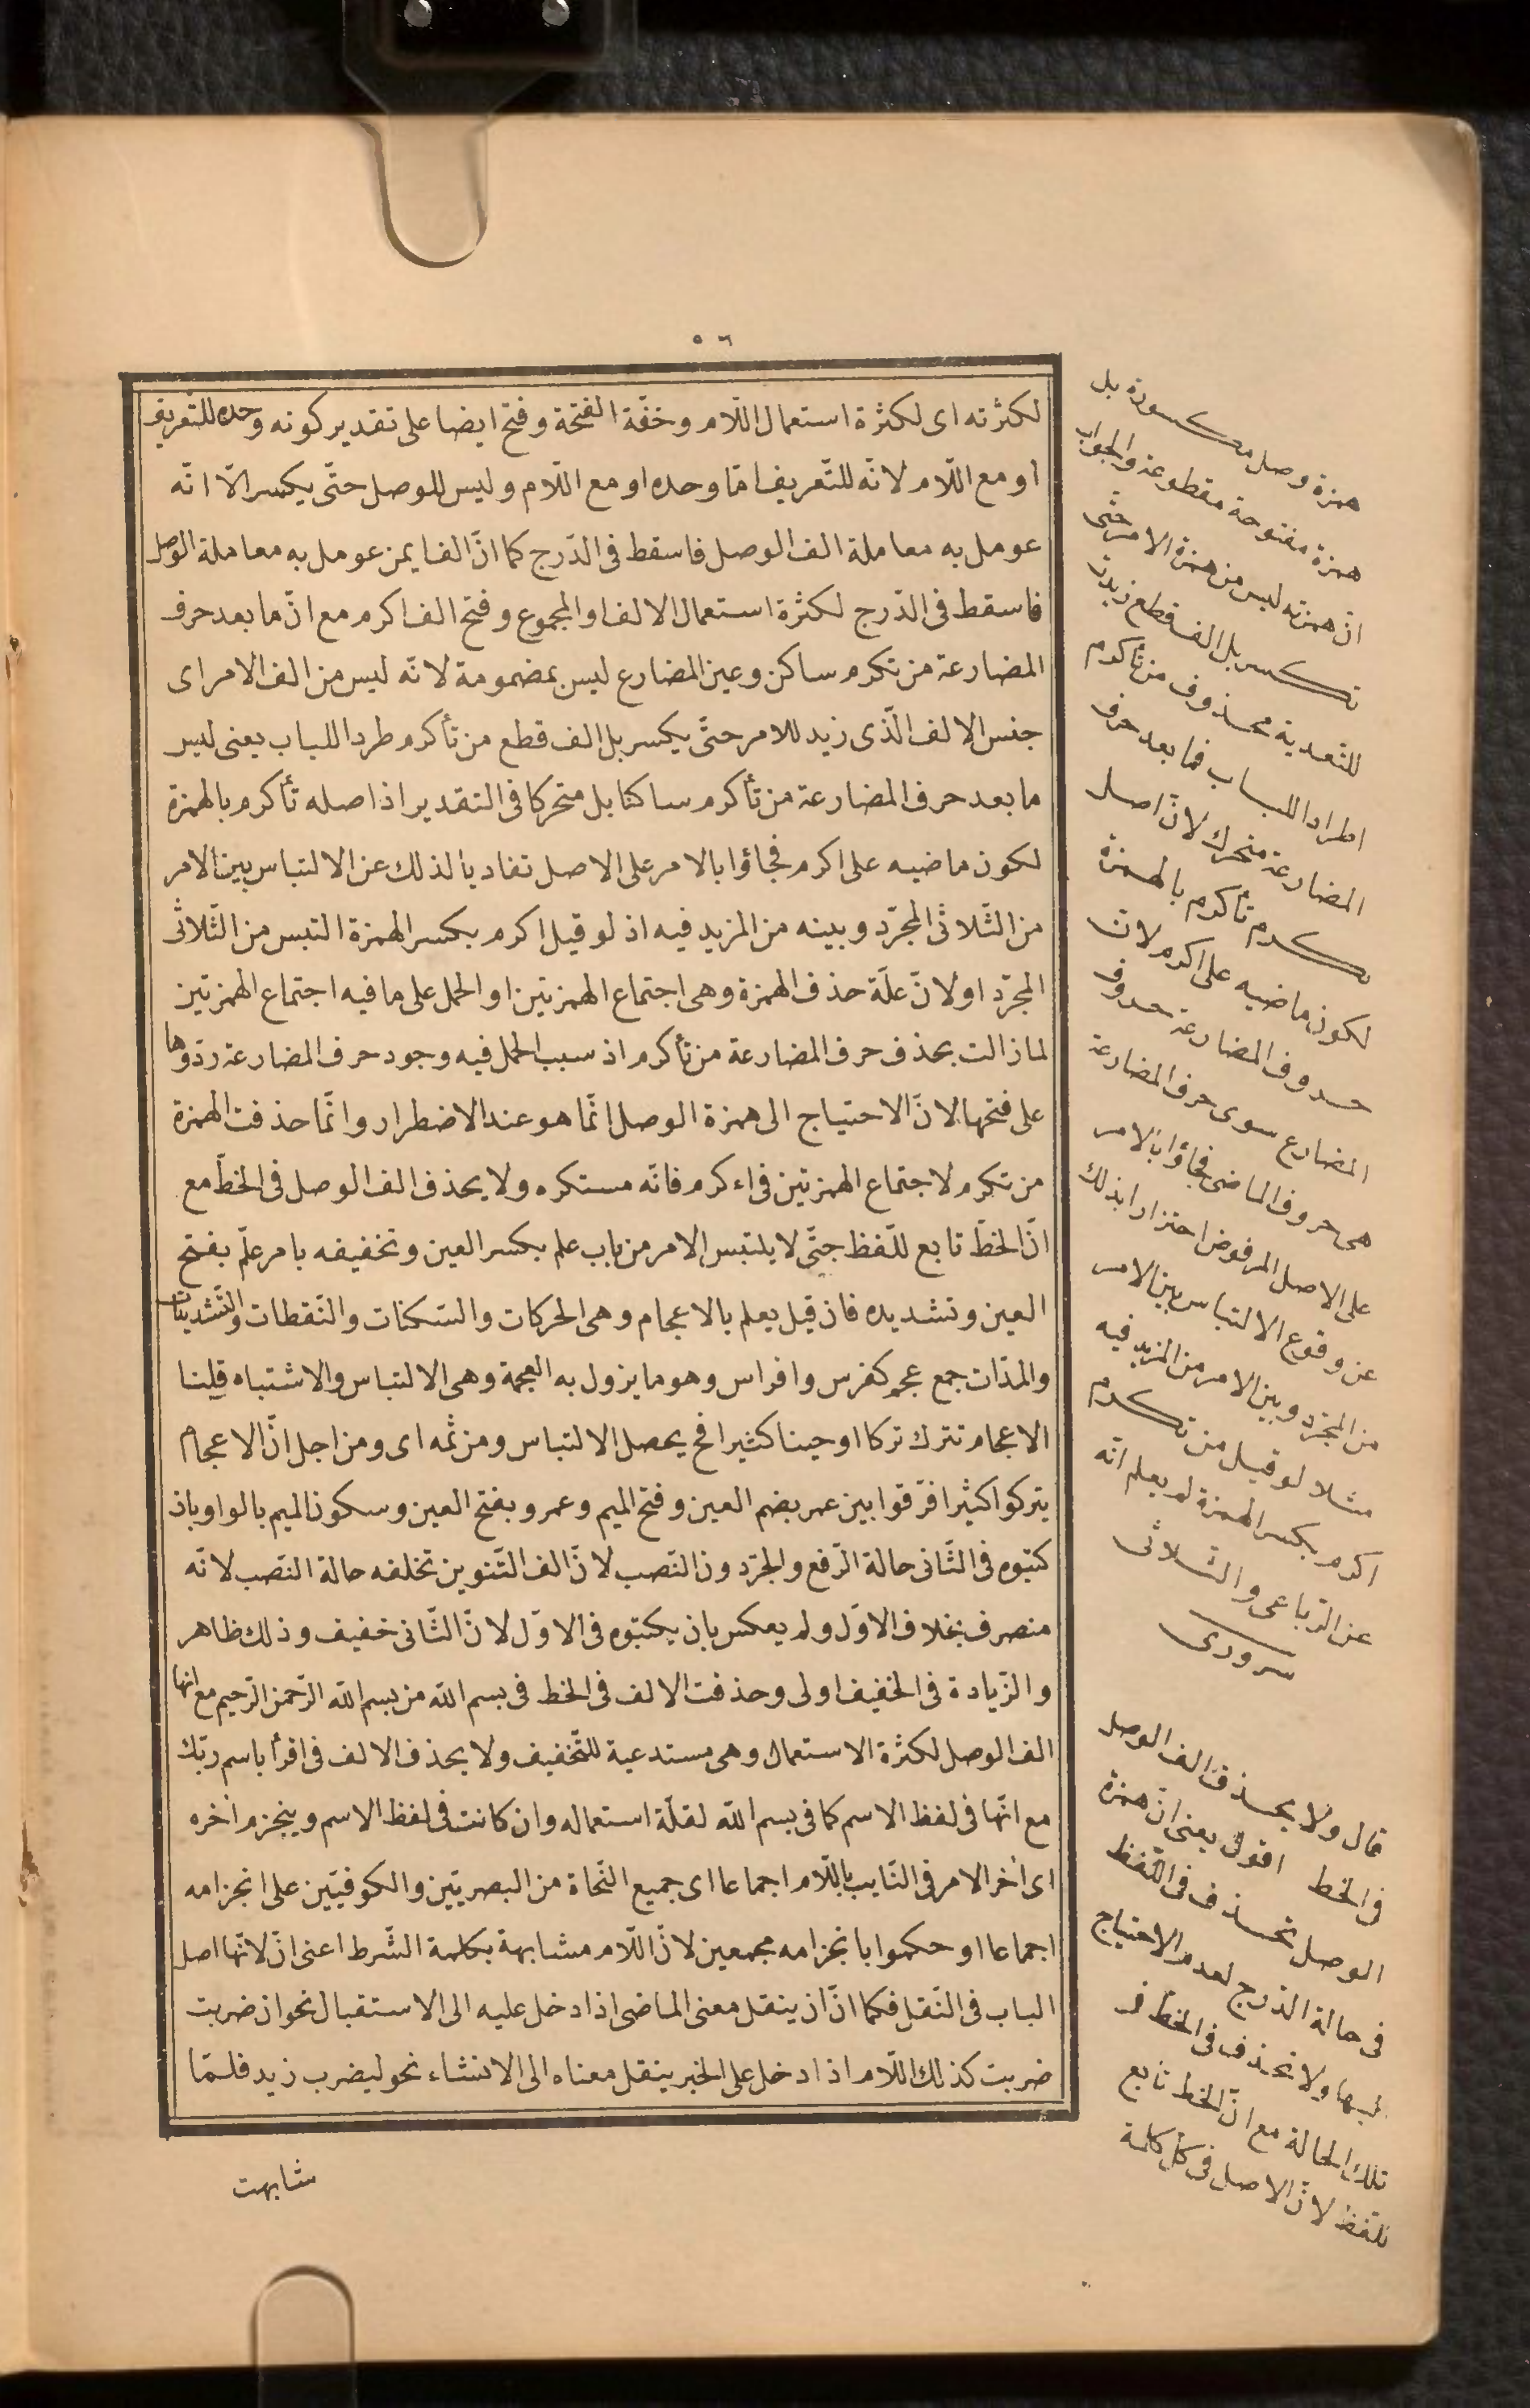 ٥٦
لكثرته اى لكثرة استعمال اللّام وخفّة الفتحة وفتح ايضا على تقدير كونه وحده للتّعريف
او مع اللّام لانّه للتّعريف امّا وحده او مع اللّام وليس للوصل حتّى يكسر الّا انّه
عومل به معاملة الف الوصل فاسقط فى الدّرج كما انّ الف ايمن عومل به معاملة الوصل
فاسقط فى الدّرج لكثرة استعمال الالف او المجموع وفتح الف اكرم مع انّ ما بعد حرف
المضارعة من تكرم ساكن وعين المضارع ليس بمضمومة لانّه ليس من الف الامر اى
جنس الالف الّذى زيد للامر حتّى يكسر بل الف قطع من تأكرم طردا للباب يعنى ليس
ما بعد حرف المضارعة من تأكرم ساكنا بل متحركا فى التقدير اذ اصله تأكرم بالهمزة
لكون ماضيه على اكرم فجاؤا بالامر على الاصل تفاديا لذلك عن الالتباس بين الامر
من الثّلاثى المجرّد وبينه من المزيد فيه اذ لو قيل اكرم بكسر الهمزة التبس من الثّلاثى
المجرّد او لانّ علّة حذف الهمزة وهى اجتماع الهمزتين او الحمل على ما فيه اجتماع الهمزتين
لما زالت بحذف حرف المضارعة من تأكرم اذ سبب الحمل فيه وجود حرف المضارعة ردّوها
على فتحها لانّ الاحتياج الى همزة الوصل انّما هو عند الاضطرار وانّما حذفت الهمزة
من تكرم لاجتماع الهمزتين فى اءكرم فانّه مستكره ولا يحذف الف الوصل فى الخطّ مع
انّ الخطّ تابع للّفظ حتّى لا يلتبس الامر من باب علم بكسر العين وتخفيفه بامر علّم بفتح
العين وتشديده فان قيل يعلم بالاعجام وهى الحركات والسّكنات والنّقطات والتّشديدات
والمدّات جمع عجم كفرس وافراس وهو ما يزول به العجمة وهى الالتباس والاشتباه قلنا
الاعجام تترك تركا او حينا كثيرا فح يحصل الالتباس ومن ثمّه اى ومن اجل انّ الاعجام
يتركوا كثيرا فرّقوا بين عمر بضم العين وفتح الميم وعمرو بفتح العين وسكون الميم بالواو بان
كتبوه فى الثّانى حالة الرّفع والجرّ دون النّصب لانّ الف التّنوين تخلفه حالة النّصب لانّه
منصرف بخلاف الاوّل ولم يعكس بان يكتبوه فى الاوّل لانّ الثّانى خفيف وذلك ظاهر
والزّيادة فى الخفيف اولى وحذفت الالف فى الخط فى بسم اللّه من بسم اللّه الرّحمن الرّحيم مع انها
الف الوصل لكثرة الاستعمال وهى مستدعية للتّخفيف ولا يحذف الالف فى اقرأ باسم ربّك
مع انّها فى لفظ الاسم كما فى بسم اللّه لقلّة استعماله وان كانت فى لفظ الاسم وينجزم أخره
اى أخر الامر فى الغايب باللّام اجماعا اى جميع النّحاة من البصريّين والكوفيّين على انجزامه
اجماعا او حكموا بانجزامه مجمعين لانّ اللّام مشابهة بكلمة الشّرط اعنى ان لانّها اصل
الباب فى النّقل فكما انّ ان ينقل معنى الماضى اذا دخل عليه الى الاستقبال نحو ان ضربت
ضربت كذلك اللّام اذا دخل على الخبر ينقل معناه الى الانشاء نحو ليضرب زيد فلمّا
شابهت
همزة وصل مكسورة بل
همزة مفتوحة مقطوعة والجواب
انّ همزته ليس من همزة الامر حتّى
تكسر بل الف قطع زيدت
للتّعدية محذوف من تأكرم
اطرادا للباب فما بعد حرف
المضارعة متحرك لانّ اصل
تكرم تأكرم بالهمزة
لكون ماضيه على اكرم لانّ
حروف المضارعة حروف
المضارع سوى حرف المضارعة
هى حروف الماضى فجاؤا بالامر
على الاصل المرفوض احترازا بذلك
عن وقوع الالتباس بين الامر
من المجرّد وبين الامر من المزيد فيه
مثلا لو قيل من تكرم
اكرم بكسر الهمزة لم يعلم انّه
عن الرّباعى والثّلاثى
سرورى
قال ولا يحذف الف الوصل
فى الخط اقول يعنى انّ همزة
الوصل تحذف فى اللّفظ
فى حالة الدّرج لعدم الاحتياج
اليها ولا تحذف فى الخط فى
تلك الحالة مع انّ الخط تابع
للّفظ لانّ الاصل فى كلّ كلمة